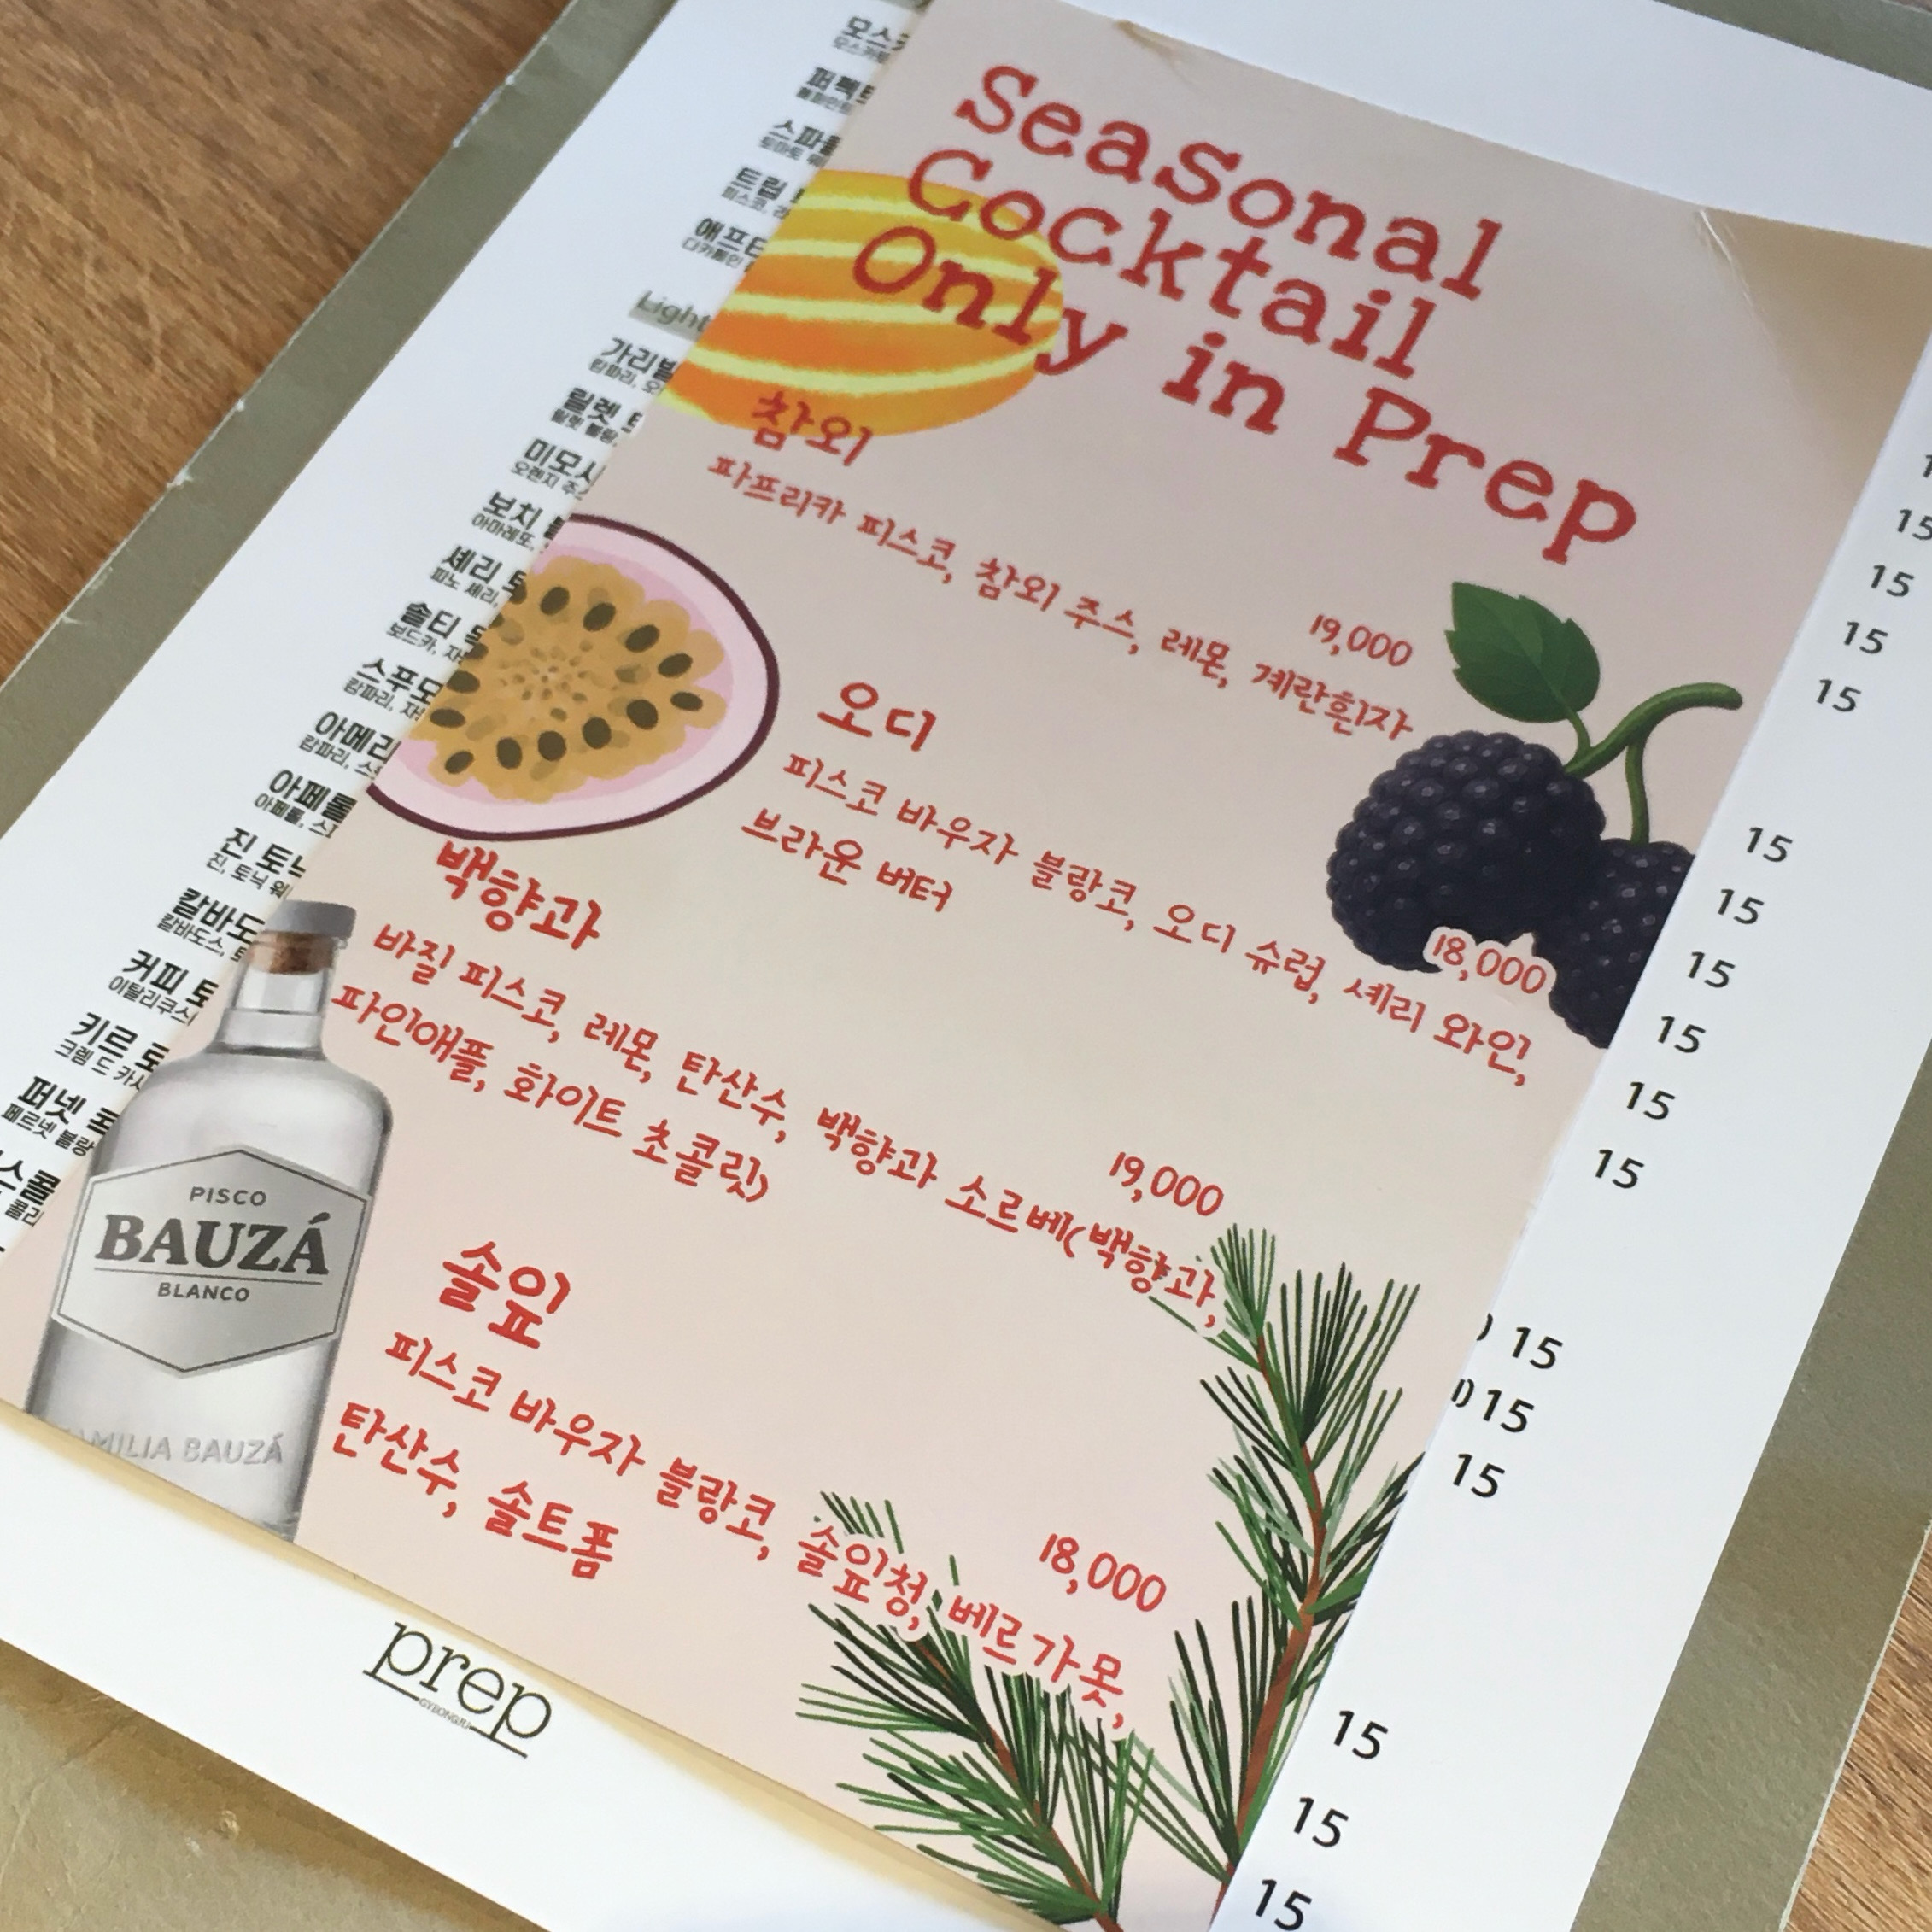 Seasonal
Cocktail
Only in Prep
참외
19,000
파프리카 피스코, 참외 주스, 레몬, 계란흰자
오디
18,000
피스코 바우자 블랑코, 오디 슈럽, 셰리 와인,
브라운 버터
백향과
19,000
바질 피스코, 레몬, 탄산수, 백향과 소르베(백향과,
파인애플, 화이트 초콜릿)
솔잎
18,000
피스코 바우자 블랑코, 솔잎청, 베르가못,
탄산수, 솔트폼
PISCO
BAUZÁ
BLANCO
BAUZÁ
prep
GYEONGJU
Light
트립
피스코,
캄파리,
미모사
오렌지
보치
아마레또,
셰리
피노 셰리,
솔티
보드카,
캄파리,
캄파리,
아페롤
아페롤,
진 토닉
진, 토닉
칼바도스,
커피
키르
크렘 드
퍼넷
15
15
15
15
15
15
15
15
15
15
15
15
15
15
15
15